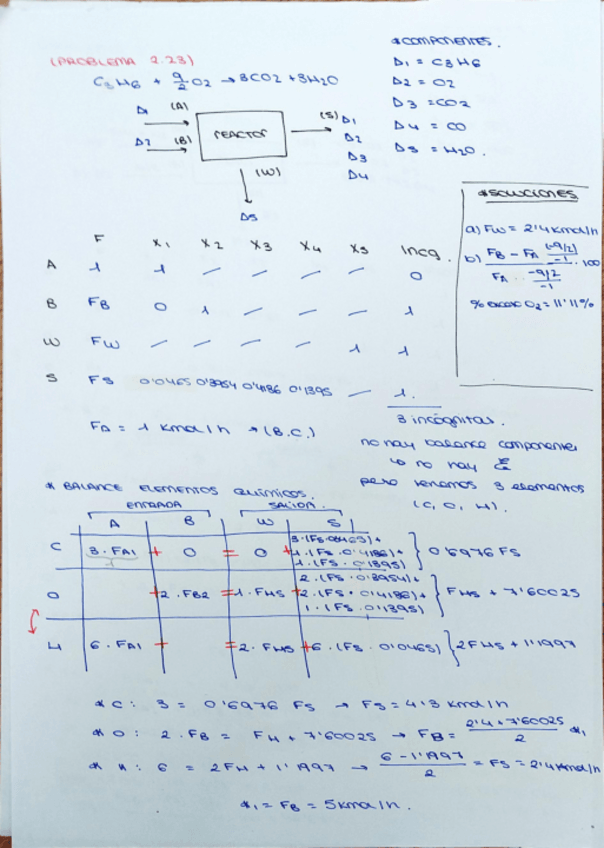 (PROBLEMA 2.23)
C3H6 + 9/2 O2 → 3CO2 + 3H2O
*COMPONENTES.
Δ1 = C3H6
Δ2 = O2
Δ3 = CO2
Δ4 = CO
Δ5 = H2O.
Δ1 (A)
Δ2 (B)
REACTOR
(S) Δ1
Δ2
Δ3
Δ4
(W)
Δ5
*SOLUCIONES
a) FW = 2'4 kmol/h
b) FB - FA (-9/2)/-1 · 100
FA -9/2/-1
% exceso O2 = 11'11%
F X1 X2 X3 X4 X5 Incg.
A 1 1 — — — — 0
B FB 0 1 — — — 1
W FW — — — — 1 1
S FS 0'0465 0'3954 0'4186 0'1395 — 1.
3 incógnitas.
FA = 1 kmol/h → (B.C.)
no hay balance componentes
↳ no hay ξ
pero tenemos 3 elementos
(C, O, H).
* BALANCE ELEMENTOS QUÍMICOS.
ENTRADA SALIDA
A B W S
C 3·FA1 + 0 = 0 + 3·(FS·0'0465)+
1·(FS·0'4186)+
1·(FS·0'1395) } 0'6976 FS
O + 2·FB2 = 1·FW5 + 2·(FS·0'3954)+
2·(FS·0'4186)+
1·(FS·0'1395) } FW5 + 7'60025
H 6·FA1 + = 2·FW5 + 6·(FS·0'0465) } 2FW5 + 1'1997
* C: 3 = 0'6976 FS → FS = 4'3 kmol/h
* O: 2·FB = FW + 7'60025 → FB = 2'4+7'60025/2 *1
* H: 6 = 2FW + 1'1997 → 6-1'1997/2 = FS = 2'4 kmol/h
*1 = FB = 5 kmol/h.